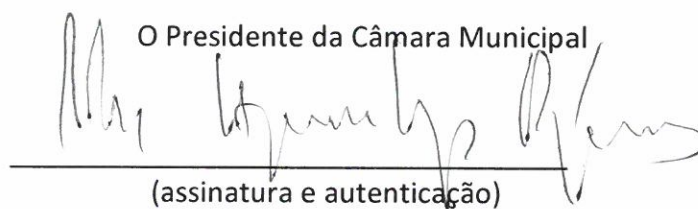 O Presidente da Câmara Municipal
(assinatura e autenticação)